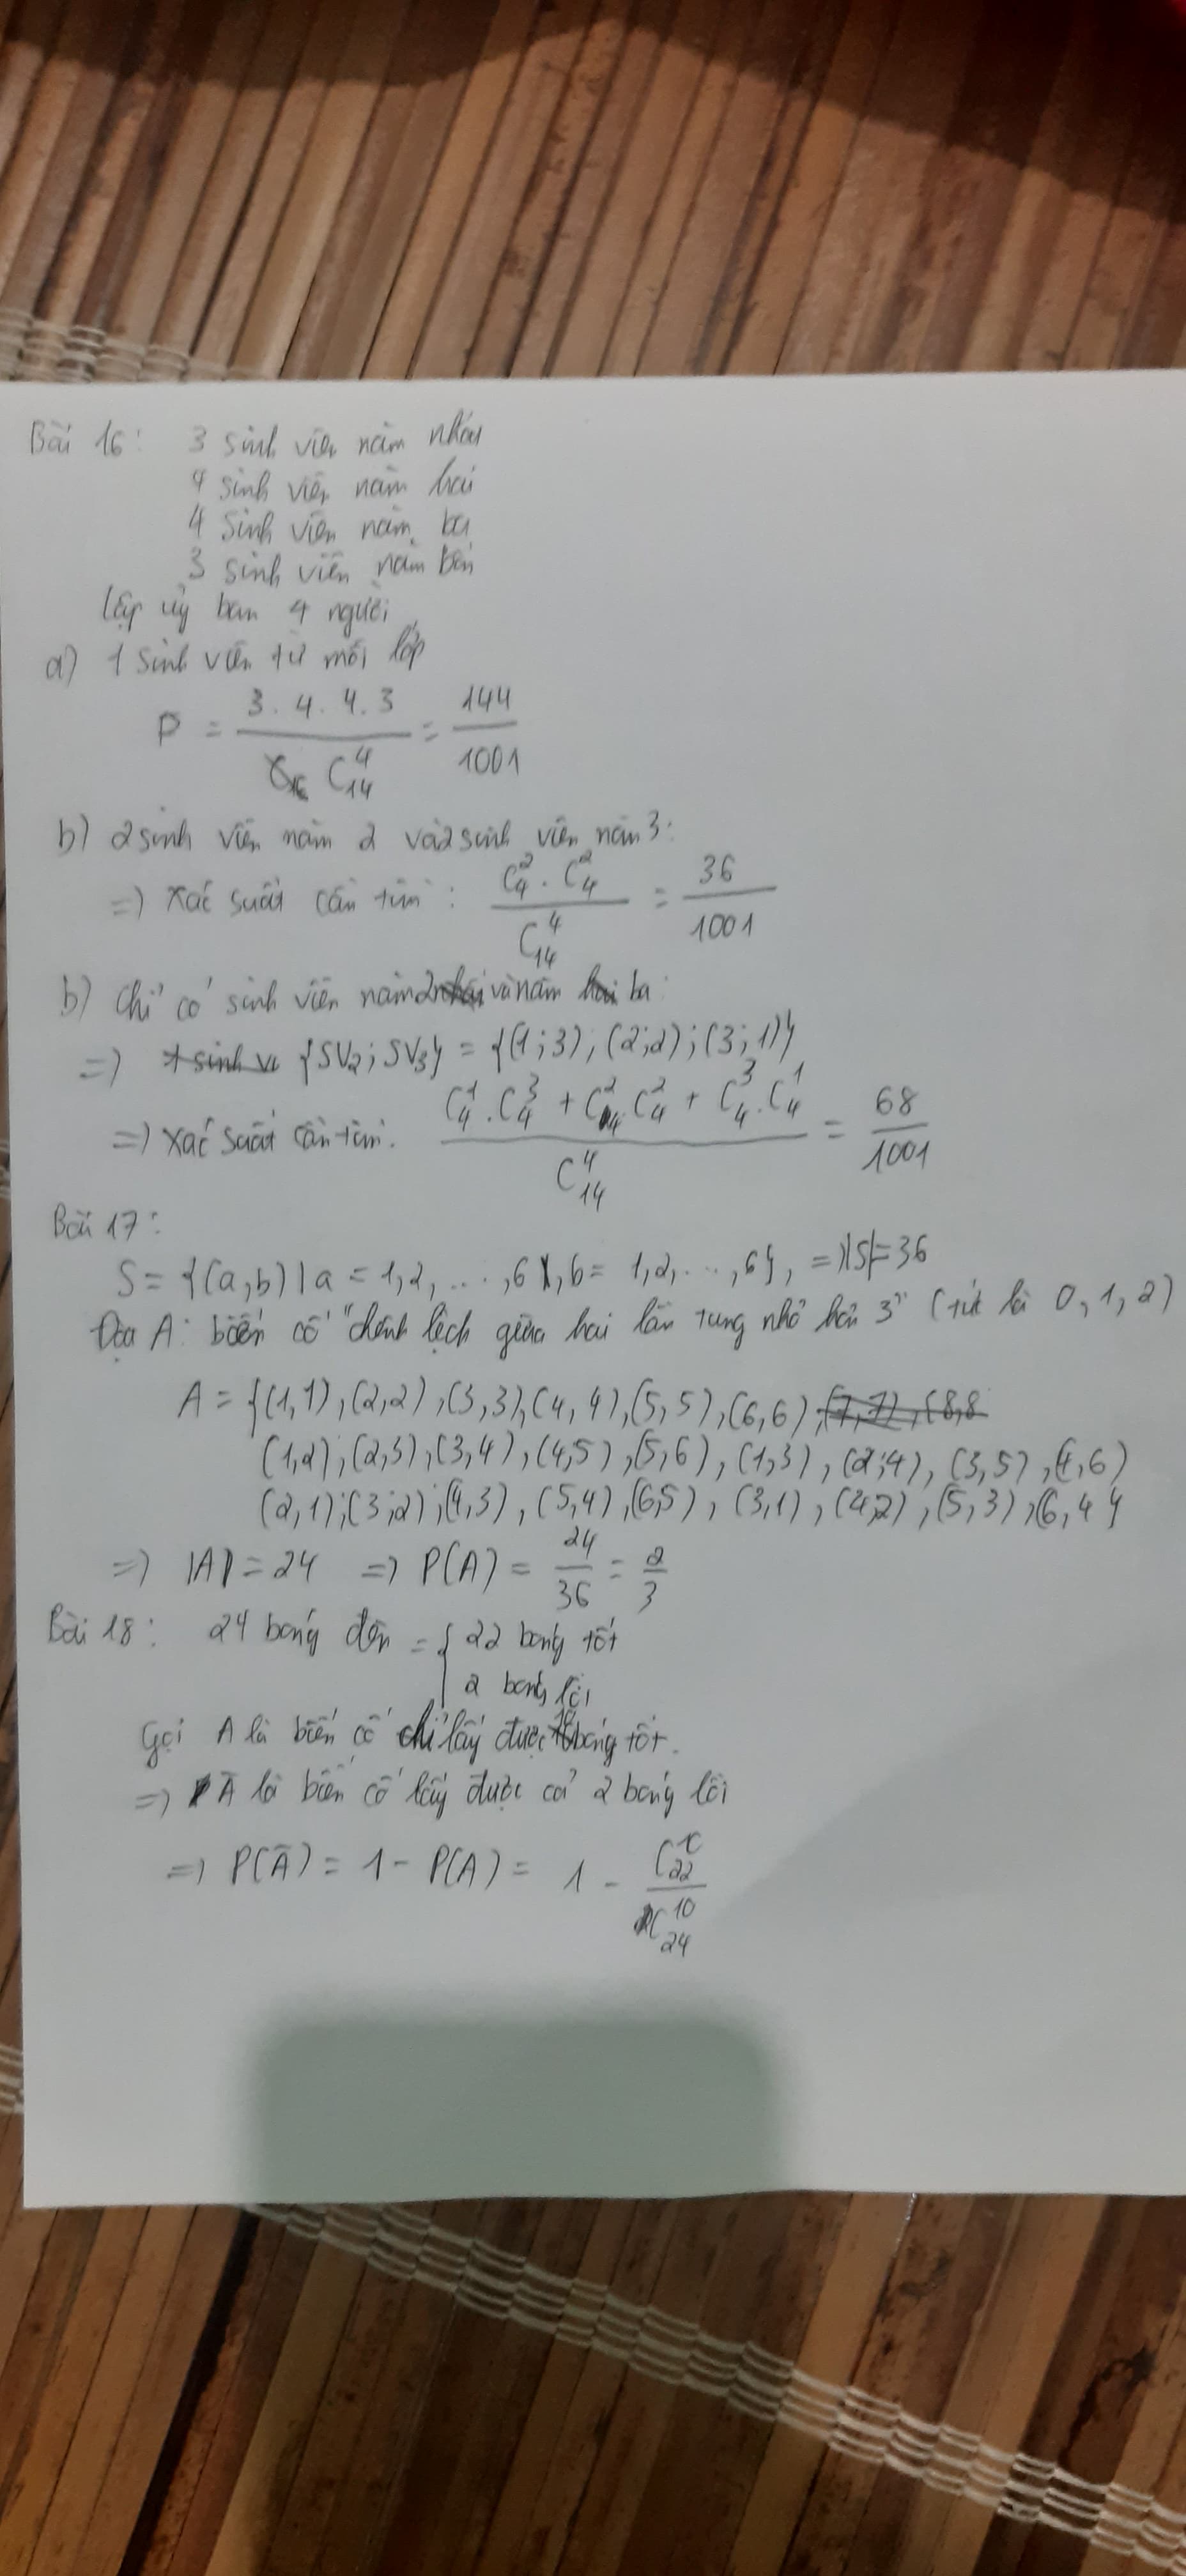 Bài 16: 3 sinh viên năm nhất
4 sinh viên năm hai
4 sinh viên năm ba
3 sinh viên năm bốn
Lập ủy ban 4 người
a) 1 sinh viên từ mỗi lớp
P = (3.4.4.3)/(C₁₄⁴) = 144/1001
b) 2 sinh viên năm 2 và 2 sinh viên năm 3:
=) Xác suất cần tìm: (C₄². C₄²)/(C₁₄⁴) = 36/1001
b) Chỉ có sinh viên năm 2 và năm ba:
=) {SV₂; SV₃} = {(1;3); (2;2); (3;1)}
=) Xác suất cần tìm. (C₄¹.C₄³ + C₄².C₄² + C₄³.C₄¹)/(C₁₄⁴) = 68/1001
Bài 17:
S = {(a,b) | a = 1,2,...,6, b = 1,2,...,6}, =) |S| = 36
A: biến cố "chênh lệch giữa hai lần tung nhỏ hơn 3" (tức là 0, 1, 2)
A = {(1,1), (2,2), (3,3), (4,4), (5,5), (6,6)
(1,2); (2,3), (3,4), (4,5), (5,6), (1,3), (2,4), (3,5), (4,6)
(2,1); (3;2); (4,3), (5,4), (6,5), (3,1), (4,2), (5,3), (6,4}
=) |A| = 24 =) P(A) = 24/36 = 2/3
Bài 18: 24 bóng đèn = { 22 bóng tốt
2 bóng lỗi
Gọi A là biến cố chỉ lấy được 10 bóng tốt.
=) Ā là biến cố lấy được cả 2 bóng lỗi
=) P(Ā) = 1 - P(A) = 1 - C₂₂¹⁰/C₂₄¹⁰